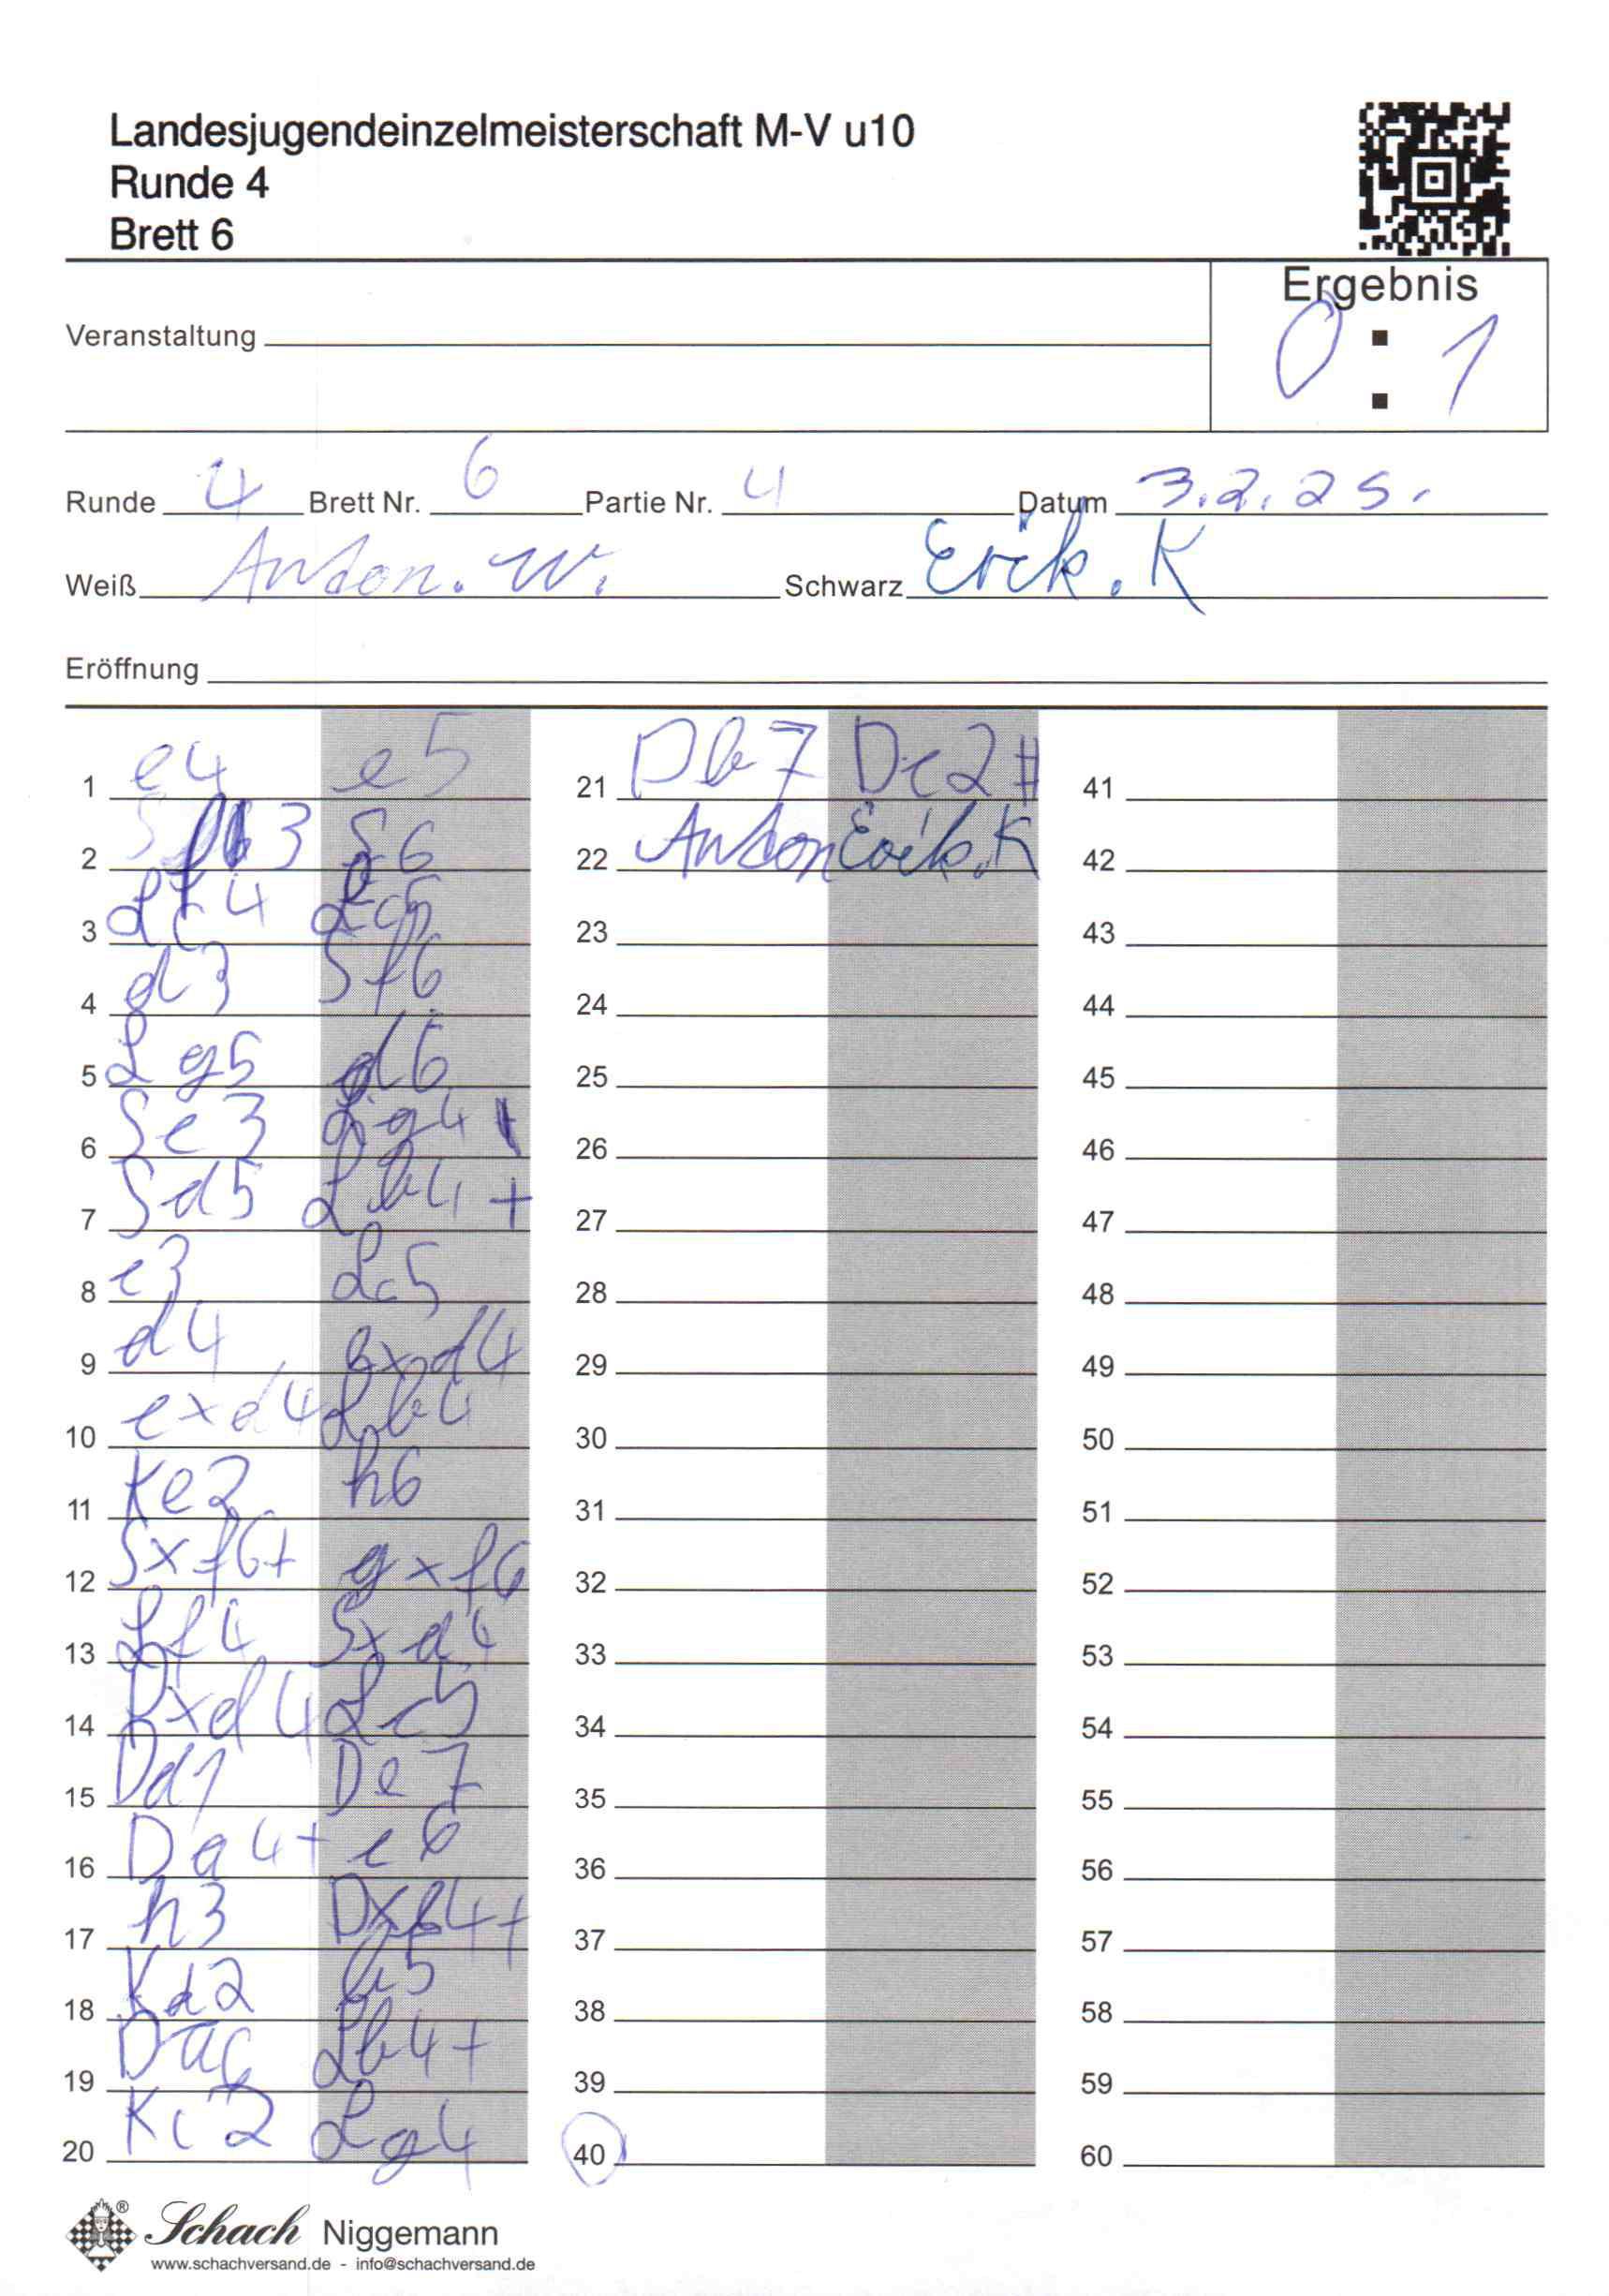 Landesjugendeinzelmeisterschaft M-V u10
Runde 4
Brett 6
Ergebnis
0 : 1
Veranstaltung
Runde 4 Brett Nr. 6 Partie Nr. 4 Datum 3.2.25.
Weiß Anton. W. Schwarz Erik. K
Eröffnung
1 e4 e5 21 Db7 Dc2# 41
2 Sf3 Sc6 22 Anton Erik.K 42
3 Lc4 Lc5 23 43
4 d3 Sf6 24 44
5 Lg5 d6 25 45
6 Sc3 Lg4 26 46
7 Sd5 Lb4+ 27 47
8 c3 Lc5 28 48
9 d4 exd4 29 49
10 cxd4 Lb4 30 50
11 Ke2 h6 31 51
12 Sxf6+ gxf6 32 52
13 Lf4 Sxd4 33 53
14 Dxd4 Lc5 34 54
15 Dd1 De7 35 55
16 Da4+ c6 36 56
17 h3 Dxe4+ 37 57
18 Kd2 b5 38 58
19 Da6 Lb4+ 39 59
20 Kc2 Lg4 40 60
Schach Niggemann
www.schachversand.de - info@schachversand.de